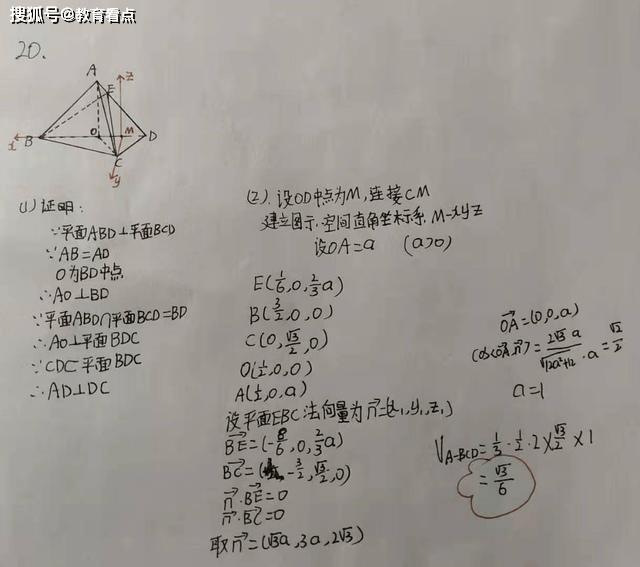 搜狐号@教育看点
20.
A
z
E
x
B
O
M
D
C
y
(1) 证明:
∵平面ABD⊥平面BCD
∵AB=AD
O为BD中点
∴AO⊥BD
∵平面ABD∩平面BCD=BD
∴AO⊥平面BDC
∵CD⊂平面BDC
∴AD⊥DC
(2). 设OD中点为M,连接CM
建立图示空间直角坐标系 M-xyz
设OA=a (a>0)
E(1/6,0,2/3a)
B(3/2,0,0)
C(0,√3/2,0)
O(1/2,0,0)
A(1/2,0,a)
设平面EBC法向量为n⃗=(x₁,y₁,z₁)
BE⃗=(-8/6,0,2/3a)
BC⃗=(-3/2,√3/2,0)
n⃗·BE⃗=0
n⃗·BC⃗=0
取n⃗=(√3a,3a,2√3)
OA⃗=(0,0,a)
cos⟨OA⃗,n⃗⟩=2√3a/√12a²+12·a=√2/2
a=1
V_A-BCD=1/3·1/2·2×√3/2×1
=√3/6